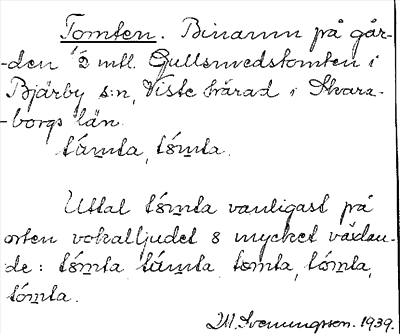 Tomten. Binamn på går-
-den 1/2 mtl. Gullsmedstomten i
Bjärby s:n, Viste härad i Skara-
-borgs län.
tómta.
Uttal vanligast på
orten vokalljudet mycket växlan-
de: tómta,
tómta.
M. Svenungsson. 1939.